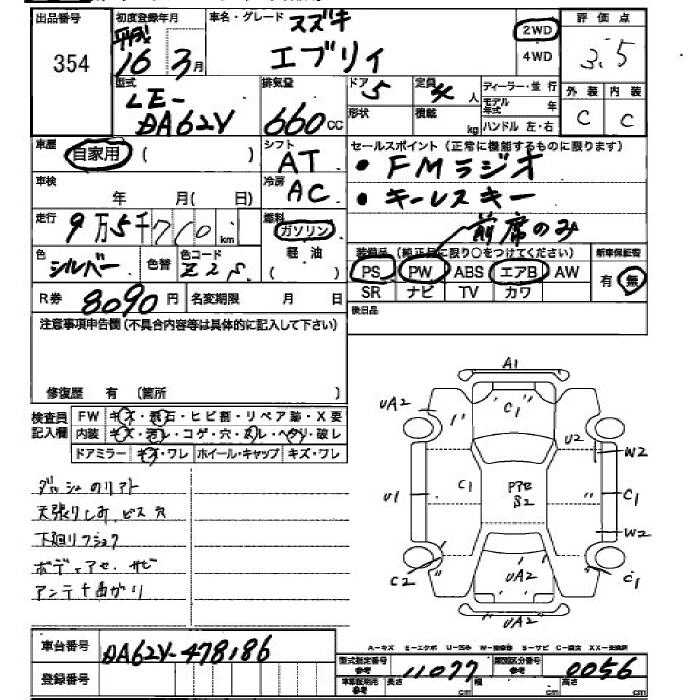 出品番号
354
初度登録年月
平成
16 3月
車名・グレード スズキ
エブリィ
2WD
4WD
評価点
3.5
外装 内装
C C
型式
LE-
DA62V
排気量
660cc
ドア 5
定員 4人
形状
積載 kg
ディーラー・並行
モデル年式 年
ハンドル 左・右
車歴
自家用 ( )
シフト
AT
セールスポイント(正常に機能するものに限ります)
・FMラジオ
・キーレスキー
前席のみ
車検
年 月( 日)
冷房
AC
走行
9万5千710km
燃料
ガソリン
軽油
( )
色
シルバー
色替
色コード
Z2S
装備品(純正品に限り○をつけてください)
PS PW ABS エアB AW
SR ナビ TV カワ
新車保証書
有 無
R券 8090円
名変期限 月 日
後日品
注意事項申告欄(不具合内容等は具体的に記入して下さい)
修復歴 有 (箇所 )
検査員記入欄
FW キズ・飛石・ヒビ割・リペア跡・X要
内装 キズ・汚レ・コゲ・穴・スレ・ヘタリ・破レ
ドアミラー キズ・ワレ ホイール・キャップ キズ・ワレ
天張りしみ、ビス穴
ボディアセ、サビ
アンテナ曲がり
A1
UA2
C1
U2
W2
U1
C1
C1
W2
C2
UA2
C1
UA2
A-キズ E-エクボ
車台番号
DA62V-478186
登録番号
型式指定番号
参考
11077
類別区分番号
参考
0056
長さ cm
幅 cm
高さ cm